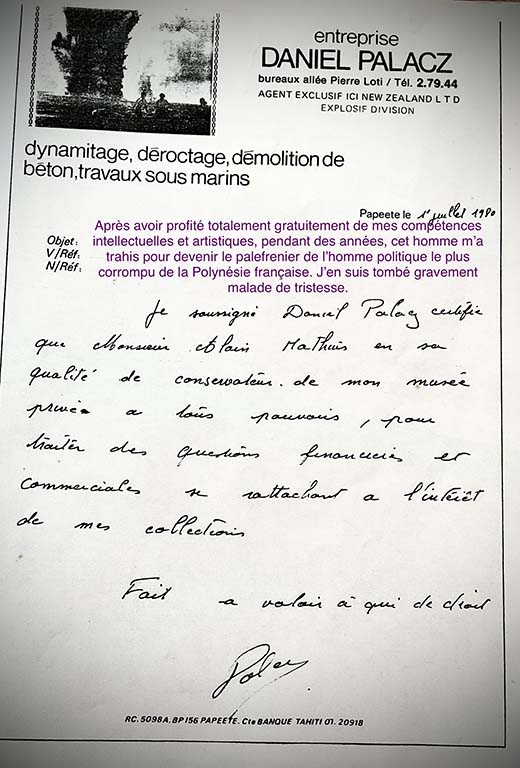 entreprise
DANIEL PALACZ
bureaux allée Pierre Loti / Tél. 2.79.44
AGENT EXCLUSIF ICI NEW ZEALAND L T D
EXPLOSIF DIVISION
dynamitage, déroctage, démolition de
béton, travaux sous marins
Papeete le 1er juillet 1980
Objet:
V/Réf:
N/Réf:
Après avoir profité totalement gratuitement de mes compétences
intellectuelles et artistiques, pendant des années, cet homme m'a
trahis pour devenir le palefrenier de l'homme politique le plus
corrompu de la Polynésie française. J'en suis tombé gravement
malade de tristesse.
Je soussigné Daniel Palacz certifie
que Monsieur Alain Mathuis en sa
qualité de conservateur de mon musée
privée a tous pouvoirs, pour
traiter des questions financieres et
commerciales se rattachant a l'intérêt
de mes collections
Fait a valoir à qui de droit
Palacz
RC. 5098A. BP 156 PAPEETE. Cte BANQUE TAHITI 01. 20918